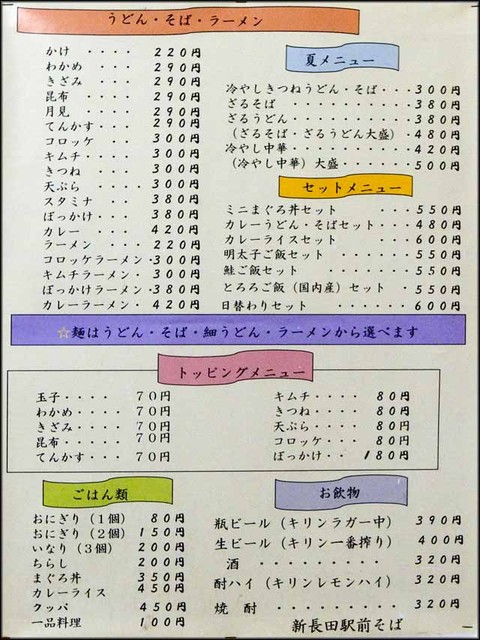 うどん・そば・ラーメン
かけ ・・・・ 220円
わかめ ・・・ 290円
きざみ ・・・ 290円
昆布 ・・・・ 290円
月見 ・・・・ 290円
てんかす・・・ 290円
コロッケ・・・ 300円
キムチ・・・・ 300円
きつね ・・・ 300円
天ぷら ・・・ 300円
スタミナ ・・ 380円
ぼっかけ・・・ 380円
カレー ・・・ 420円
ラーメン ・・・ 220円
コロッケラーメン・300円
キムチラーメン・ 300円
ぼっかけラーメン・380円
カレーラーメン・ 420円
夏メニュー
冷やしきつねうどん・そば・・・300円
ざるそば ・・・・・・・・・380円
ざるうどん・・・・・・・・・380円
(ざるそば・ざるうどん大盛)・480円
冷やし中華・・・・・・・・・420円
(冷やし中華)大盛・・・・・・500円
セットメニュー
ミニまぐろ丼セット ・・・550円
カレーうどん・そばセット・・・480円
カレーライスセット ・・・600円
明太子ご飯セット ・・・・・550円
鮭ご飯セット ・・・・・550円
とろろご飯(国内産)セット ・・550円
日替わりセット ・・・・・・600円
☆麺はうどん・そば・細うどん・ラーメンから選べます
トッピングメニュー
玉子・・・・・ 70円
わかめ・・・・ 70円
きざみ・・・・ 70円
昆布・・・・・ 70円
てんかす・・・ 70円
キムチ・・・・ 80円
きつね・・・・ 80円
天ぷら・・・・ 80円
コロッケ・・・ 80円
ぼっかけ・・ 180円
ごはん類
おにぎり(1個) 80円
おにぎり(2個) 150円
いなり(3個) 200円
ちらし 200円
まぐろ丼 350円
カレーライス 450円
クッパ 450円
一品料理 100円
お飲物
瓶ビール(キリンラガー中) 390円
生ビール(キリン一番搾り) 400円
酒 ・・・・・・・・・・ 320円
酎ハイ(キリンレモンハイ) 320円
焼 酎 ・・・・・・・・・320円
新長田駅前そば